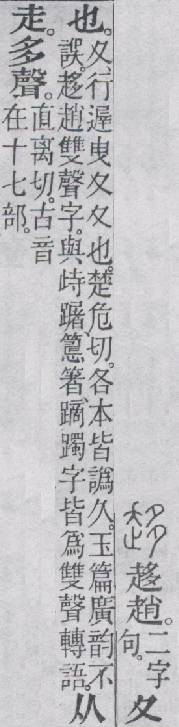 趍 趍趙。二字句。夊
也。夊,行遟曳夊夊也。楚危切。各本皆譌久。玉篇廣韵不
誤。趍趙雙聲字。與歭䠧、箸、蹢躅字皆爲雙聲轉語。从
走。多聲。直离切。古音
在十七部。